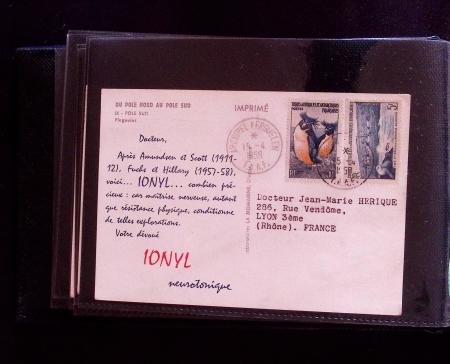 DU POLE NORD AU POLE SUD
IX - POLE SUD
Pingouins
IMPRIMÉ
Docteur,
Après Amundsen et Scott (1911-
12), Fuchs et Hillary (1957-58),
voici... IONYL... combien pré-
cieux : car maîtrise nerveuse, autant
que résistance physique, conditionne
de telles explorations.
Votre dévoué
IONYL
neurotonique
TERRES AUSTRALES ET ANTARCTIQUES
FRANÇAISES
POSTES
15-4
1958
T.A.A.F.
15-4
Docteur Jean-Marie HERIQUE
286, Rue Vendôme,
LYON 3ème
(Rhône). FRANCE